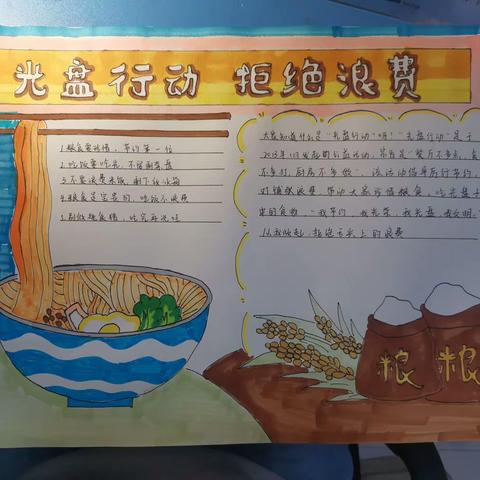 光盘行动 拒绝浪费
1.粮食要珍惜，节约第一位
2.吃饭要吃光，不留剩菜盘
3.不要浪费米饭，剩下
4.粮食是宝贵的，吃饭不浪费
5.别做
大家知道什么是"光盘行动"吗！"光盘行动"是于
2013年1月发起的公益活动，其旨是"餐厅不多点，食
不多打，厨房不多做"。该活动倡导厉行节约，
对铺张浪费，带动大家珍惜粮食，吃光盘子
中的食物，"我节约，我光荣，我光盘，我
从我做起，拒绝舌尖上的浪费
粮
粮